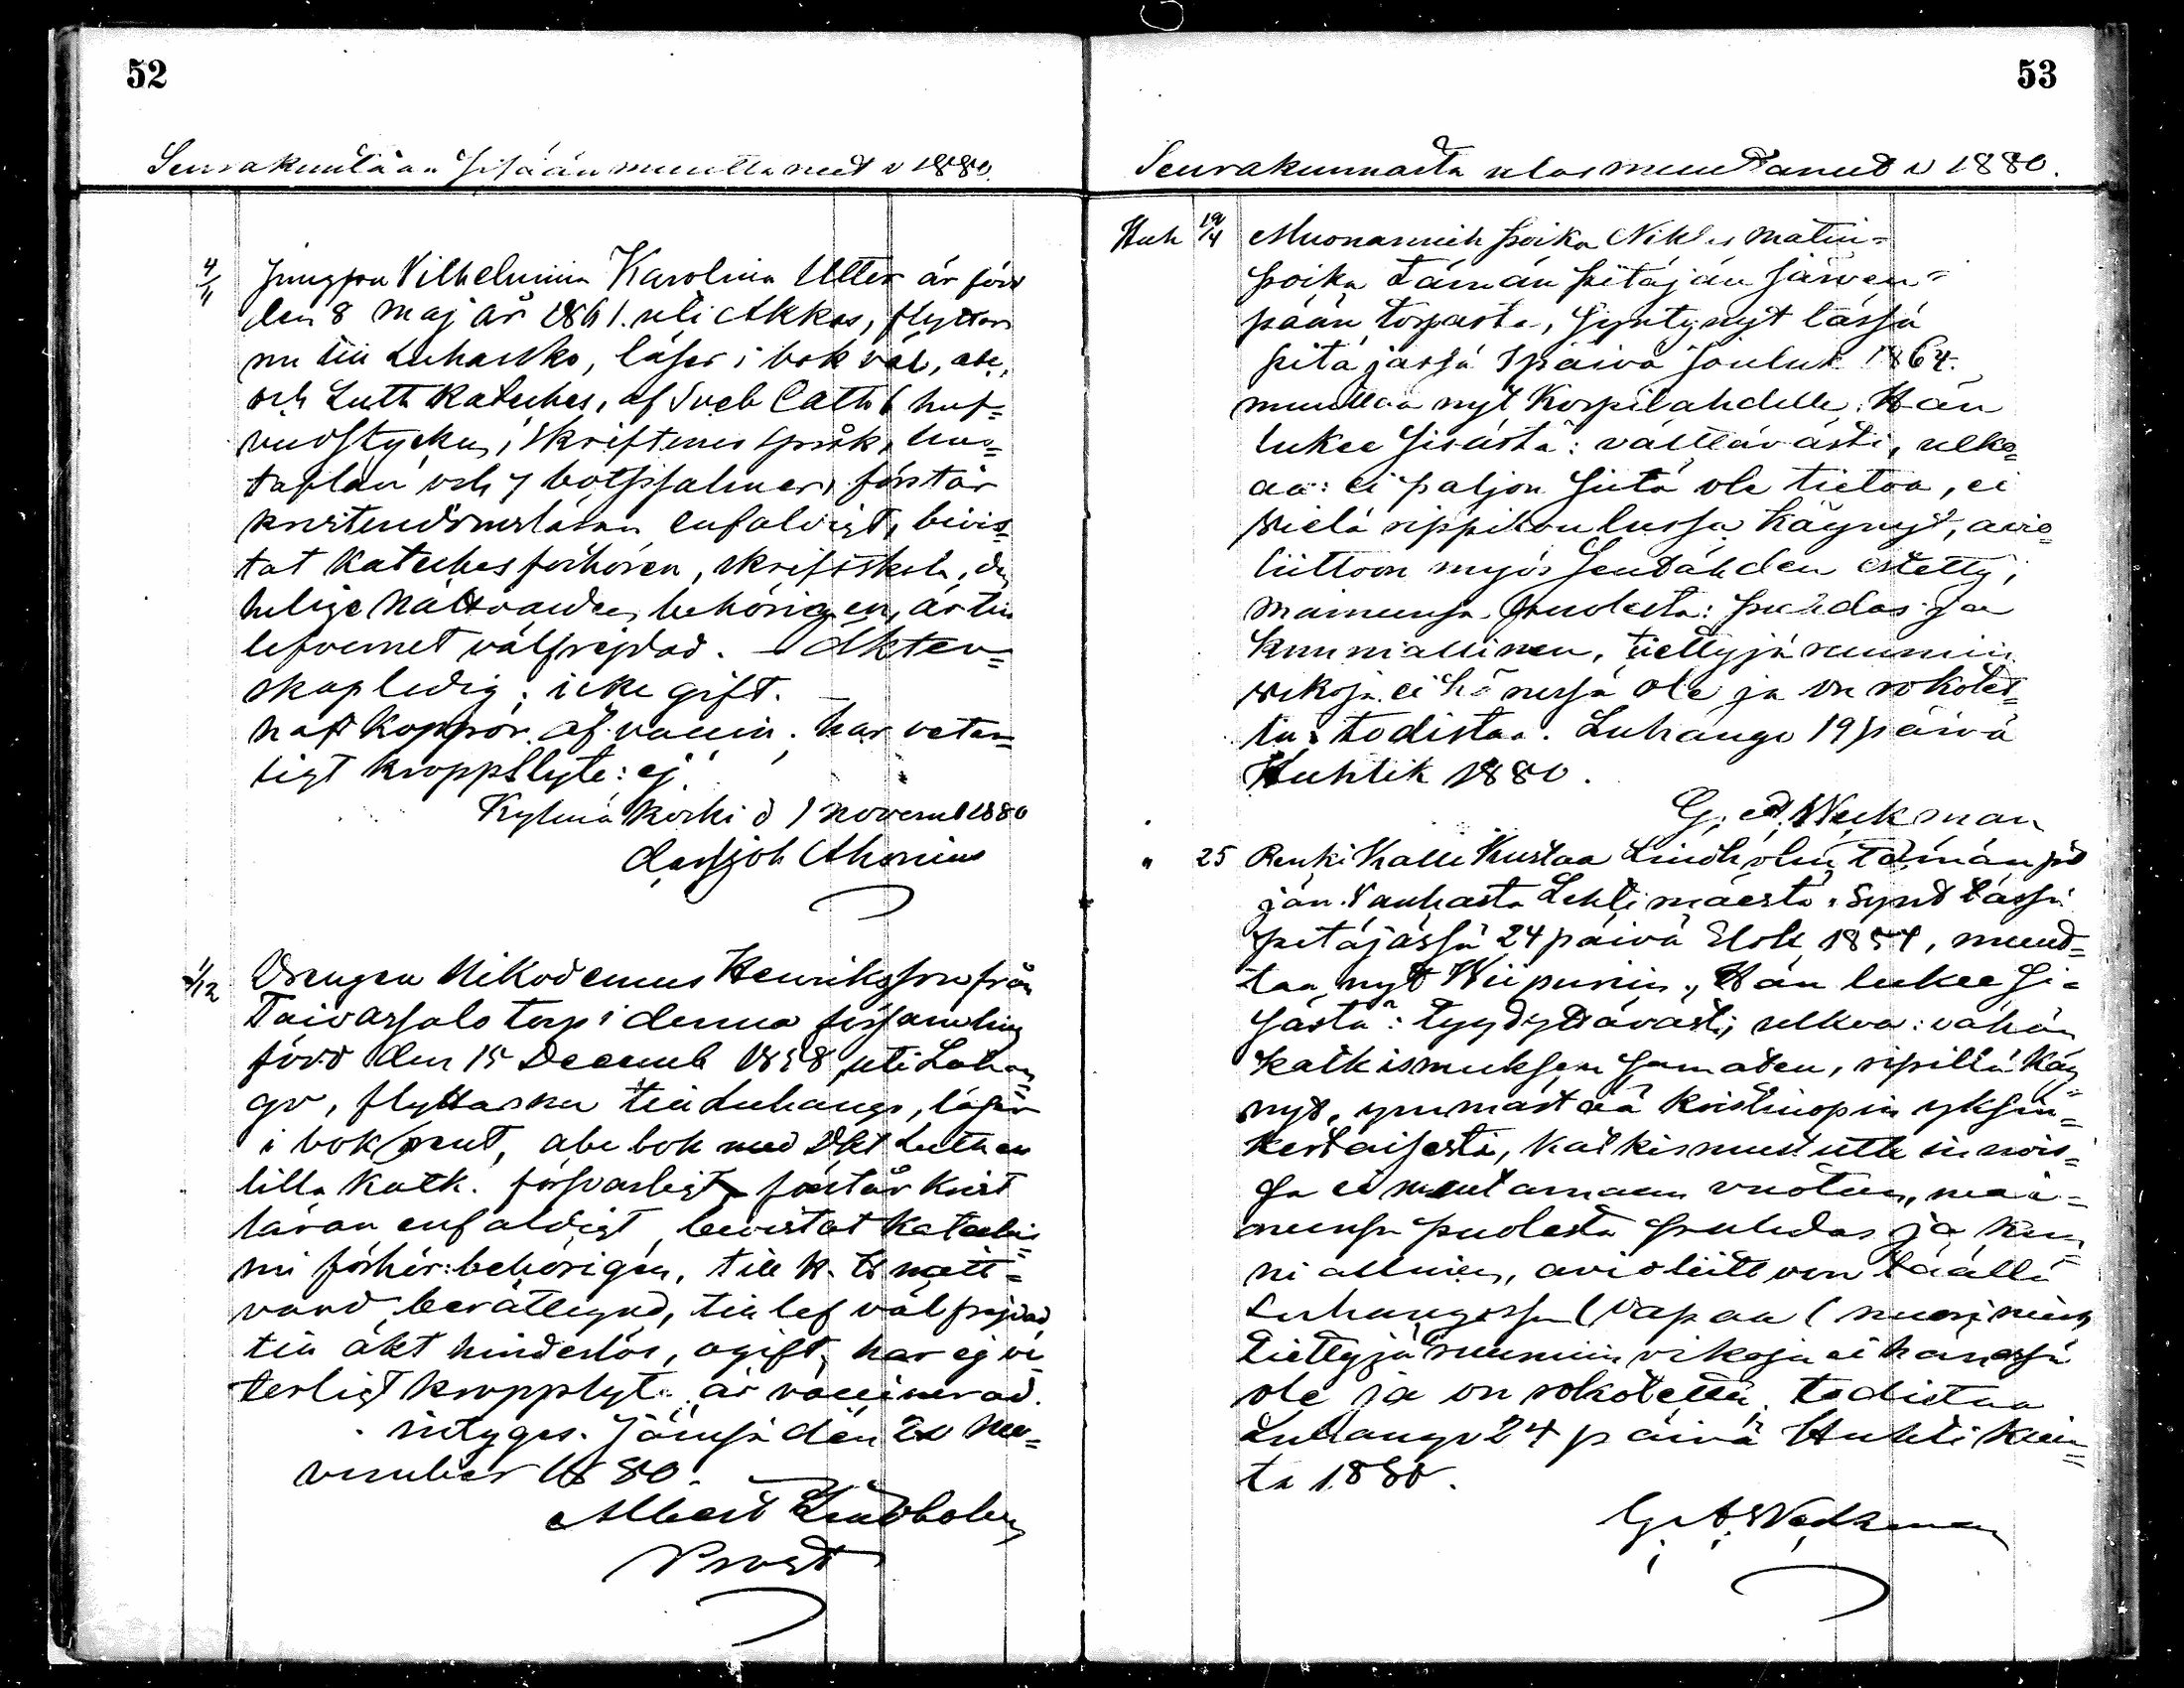 52
Seurakuntaan sisään muuttaneet v 1880.
4/11 Jungfru Vilhelmina Karolina Utter är född
den 8 Maj år 1861. uti Akkas, flyttar
nu till Luhanko, läser i bok väl, abc,
och Luth Kateches, af Sveb Cath 6 huf=
vudstycken, i skriftenes språk, hus=
taflan och 7 botpsalmer, förstår
kristendomsläran enfaldigt, bevis=
tat Katechesförhören, skriftskola, den
helige Nattvarden behörigen, är till
lefvernet välfrejdad. – Äkten=
skapledig; icke gift. –
haft koppor af vaccin; har veter=
ligt kroppslyte: ej
Kylmäkoski d 1 novemb 1880
Joh Ahonius
1/12 Drengen Nikodemus Henriksson från
Taivassalo torp i denna församling
född den 15 Decemb 1858, uti Luhan=
go, flyttar nu till Luhango, läser
i bok rent, abc bok med Dkt Luth en
lilla Katk. försvarligt, förstår krist
läran enfaldigt, bevistat Kateketis
mi förhör: behörigen, till H. H natt=
vard berättigad, till lef välfrejdad,
till äkt hinderlös, ogift, har ej ve=
terligt kropplyte, är vaccinerad.
intygas. Jämsä den 20 No=
vember 1880.
Albert Lindholm
Prost
53
Seurakunnasta ulos muuttaneet v 1880.
Huh 19/4 Muonamieh poika Niklas Matin=
poika tämän pitäjän Järven=
pään torpasta, syntynyt tässä
pitäjässä 1 päivä Jouluk 1864.
muuttaa nyt Korpilahdelle. Hän
lukee sisästä: välttävästi, ulkoa=
aa: ei paljon siitä ole tietoa, ei
vielä rippikoulussa käynyt, avio=
liittoon myös sentähden estetty,
maineensa puolesta: puhdas ja
kunniallinen, tiettyjä ruumiin
vikoja ei hänessä ole ja on rokotet=
tu: todistaa. Luhango 19 päivä
Huhtik 1880.
G. A. Weckman
" 25 Renki Kalle Kustaa Lindholm tämän pitä
jän Vanhasta Lehtimäestä. Synt tässä
pitäjässä 24 päivä Elok 1854, muut=
taa nyt Wiipuriin, Hän lukee si=
sästä: tyydyttävästi, ulkoa: vähän
katkismuksen sanaten, ripillä käy=
nyt, ymmärtää kristinopin yksin=
kertaisesti, katkismus
ei muutamaan vuoteen, mai=
neensa puolesta puhdas ja kun=
niallinen, avioliittoon täällä
Luhangossa (vapaa ( nuori mies
tiettyjä ruumiin vikoja ei hänessä
ole ja on rokotettu. todistaa
Luhango 24 päivä Huhtikuu=
ta 1880.
G. A. Weckman